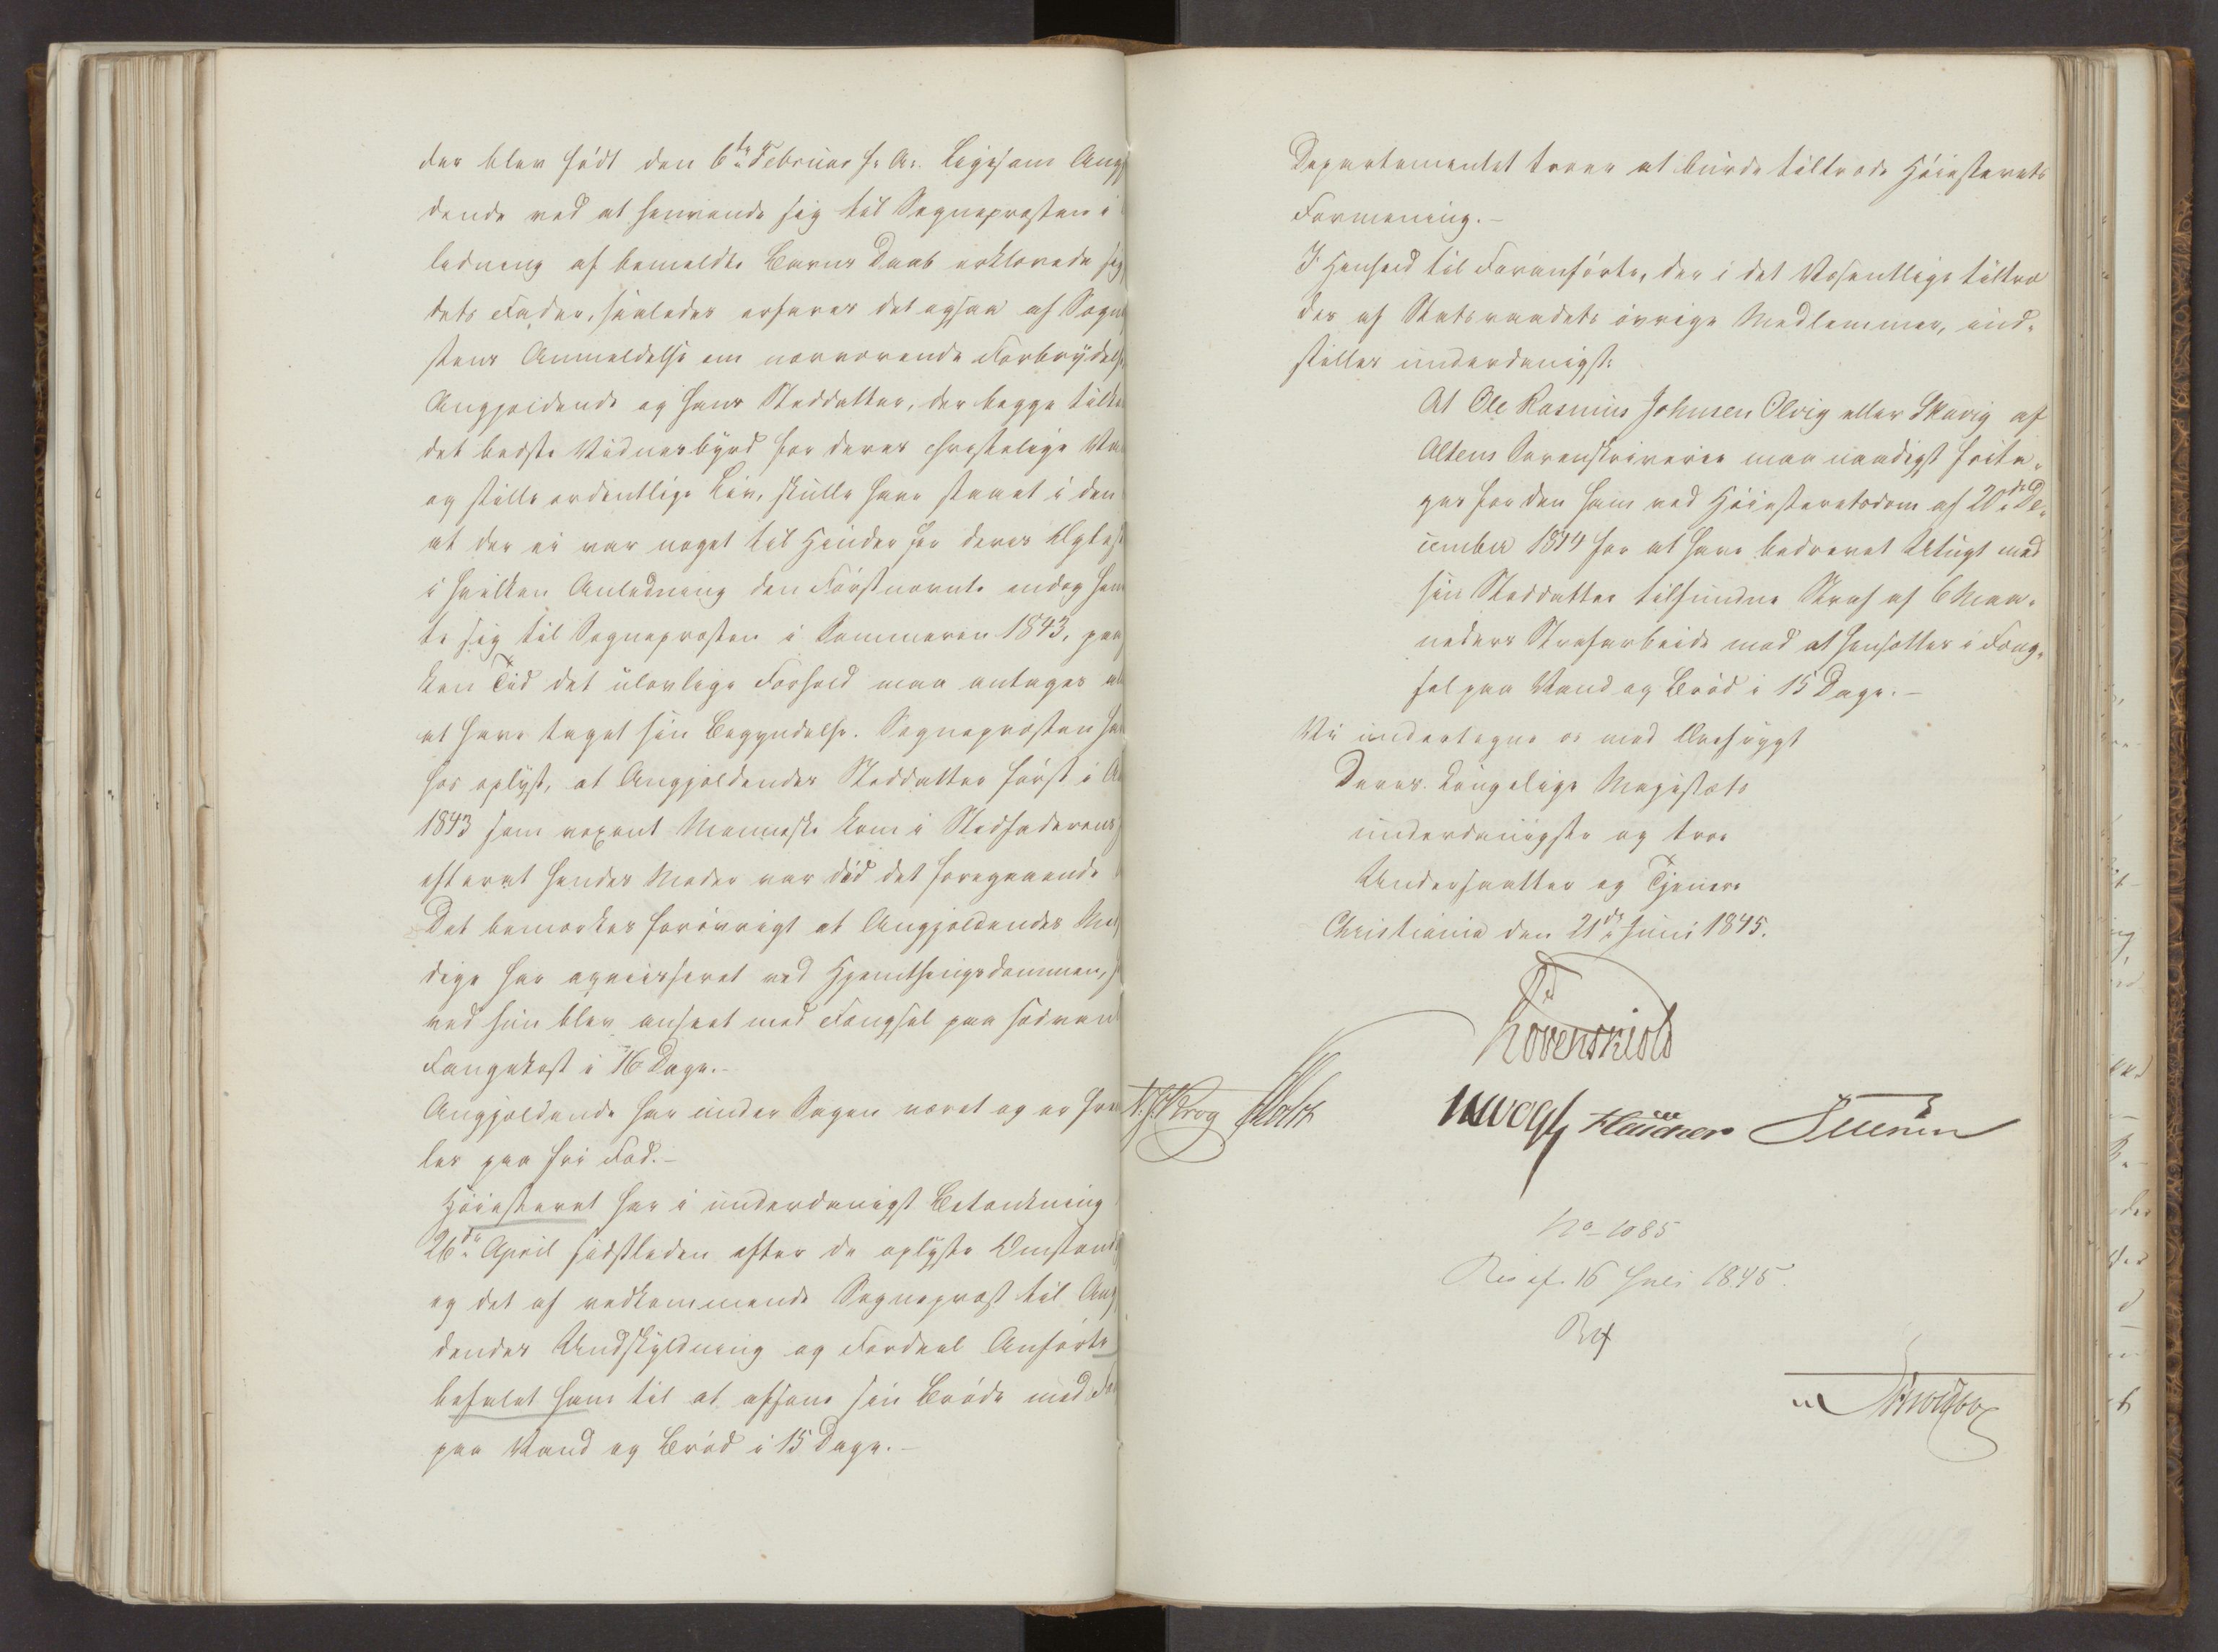 der blev født den 6te Februar f. A. Ligesom Ang
dende ved at henvende sig til Sognepræsten i
ledning af bemeldte Barns Daab erklærede sig
dets Fader, saaledes erfares det ogsaa af Sogne
stens Anmeldelse om nærværende Forbrydelse
Angjeldende og hans Steddatter, der begge tilke
det bedste Vidnesbyrd for deres christelige Va
og stille ordentlige Liv, skulle have staaet i den
at der ei var noget til Hinder for deres Ægtes
i hvilken Anledning den Førstnævnte endog hen
te sig til Sognepræsten i Sommeren 1843, paa
ken Tid det ulovlige Forhold maa antages al
at have taget sin Begyndelse. Sognepræsten ha
hos oplyst, at Angjældendes Steddatter først i A
1843 som voxent Menneske kom i Stedfaderens
efterat hendes Moder var død det foregaaende
Det bemærkes forøvrigt at Angjældendes Med
dige har aqviesceret ved Hjemthingsdommen,
ved hun blev anseet med Fængsel paa sædvanl
Fangekost i 16 Dage.-
Angjældende har under Sagen været og er frem
les paa fri Fod.-
Høiesteret har i underdanigst Betænkning
26de April sidstleden efter de oplyste Omstænd
og det af vedkommende Sognepræst til Ang
dendes Undskyldning og Fordeel Anførte
befalet ham til at afsone sin Brøde med Fæ
paa Vand og Brød i 15 Dage.-
Departementet troer at burde tiltræde Høiesterets
Formening.-
I Henhold til Foranførte, der i det Væsentlige tiltræ
des af Statsraadets øvrige Medlemmer, ind-
stilles underdanigst:
At Ole Rasmus Johnsen Olvig eller Skavig af
Altens Sorenskriverie maa naadigst frita-
ges for den ham ved Høiesteretsdom af 20de De-
cember 1844 for at have bedrevet Utugt med
sin Steddatter tilfundne Straf af 6 Maa-
neders Strafarbeide mod at hensættes i Fæng-
sel paa Vand og Brød i 15 Dage.-
Vi undertegne os med Ærefrygt
Deres Kongelige Majestæts
underdanigste og troe
Undersaatter og Tjenere
Christiania den 21de Juni 1845.
Løvenskiold
Krog Holst Vogt
No 1085
Res af 16 Juli 1845.